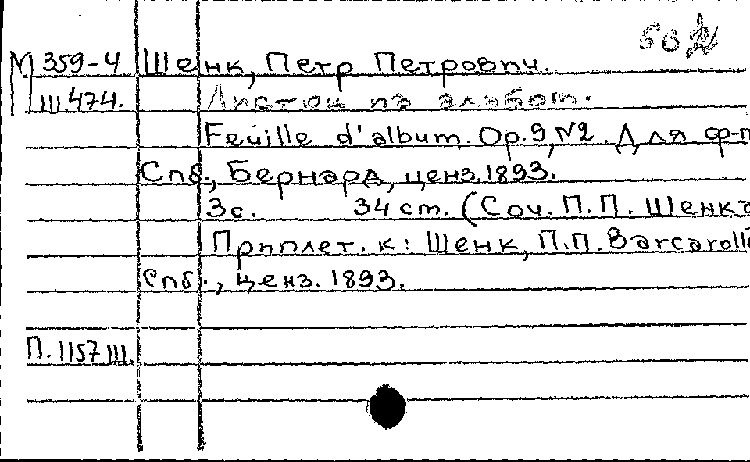 М 359-4 Шенк, Петр Петрович.
Ш.474. Листок из альбома.
Feuille d'album. Op.9, №2. Для ф-п
Спб., Бернард, ценз.1893.
3с. 34 cm. (Соч. П.П. Шенка
Приплет. к: Шенк, П.П. Barcarolle
Спб., ценз. 1893.
П.1157 III.